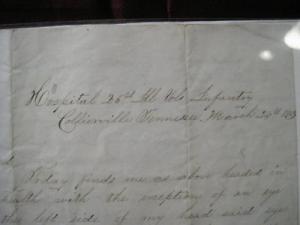 Hospital 26th Ill Vols Infantry
Collierville Tennessee, March 24th 183
Today finds me as above headed in
health with the exception of an eye
the left side of my head said eye